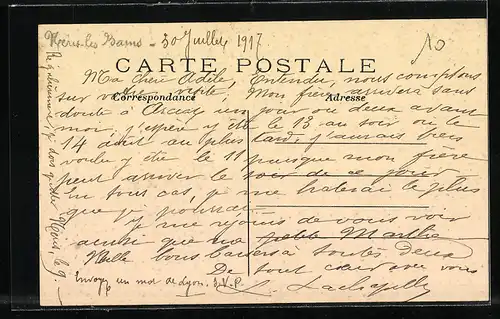 Néris-les-Bains - 30 Juillet 1917
CARTE POSTALE
Correspondance
Adresse
Ma chère Adèle, Entendu, nous comptons
sur votre visite. Mon frère arrivera sans
doute à un jour ou deux avant
moi, j'espère y être le 13 au soir ou le
14 août au plus tard, j'aurais bien
voulu y être le 11 puisque mon frère
peut arriver le soir de ce jour.
En tous cas, je me hâterai le plus
que je pourrai.
Je me réjouis de vous voir
ainsi que ma petite
Mille bons baisers à toutes deux
De tout cœur avec vous
Envoyez un mot de Lyon. S.V.P.
je dois quitter Néris, le 9.